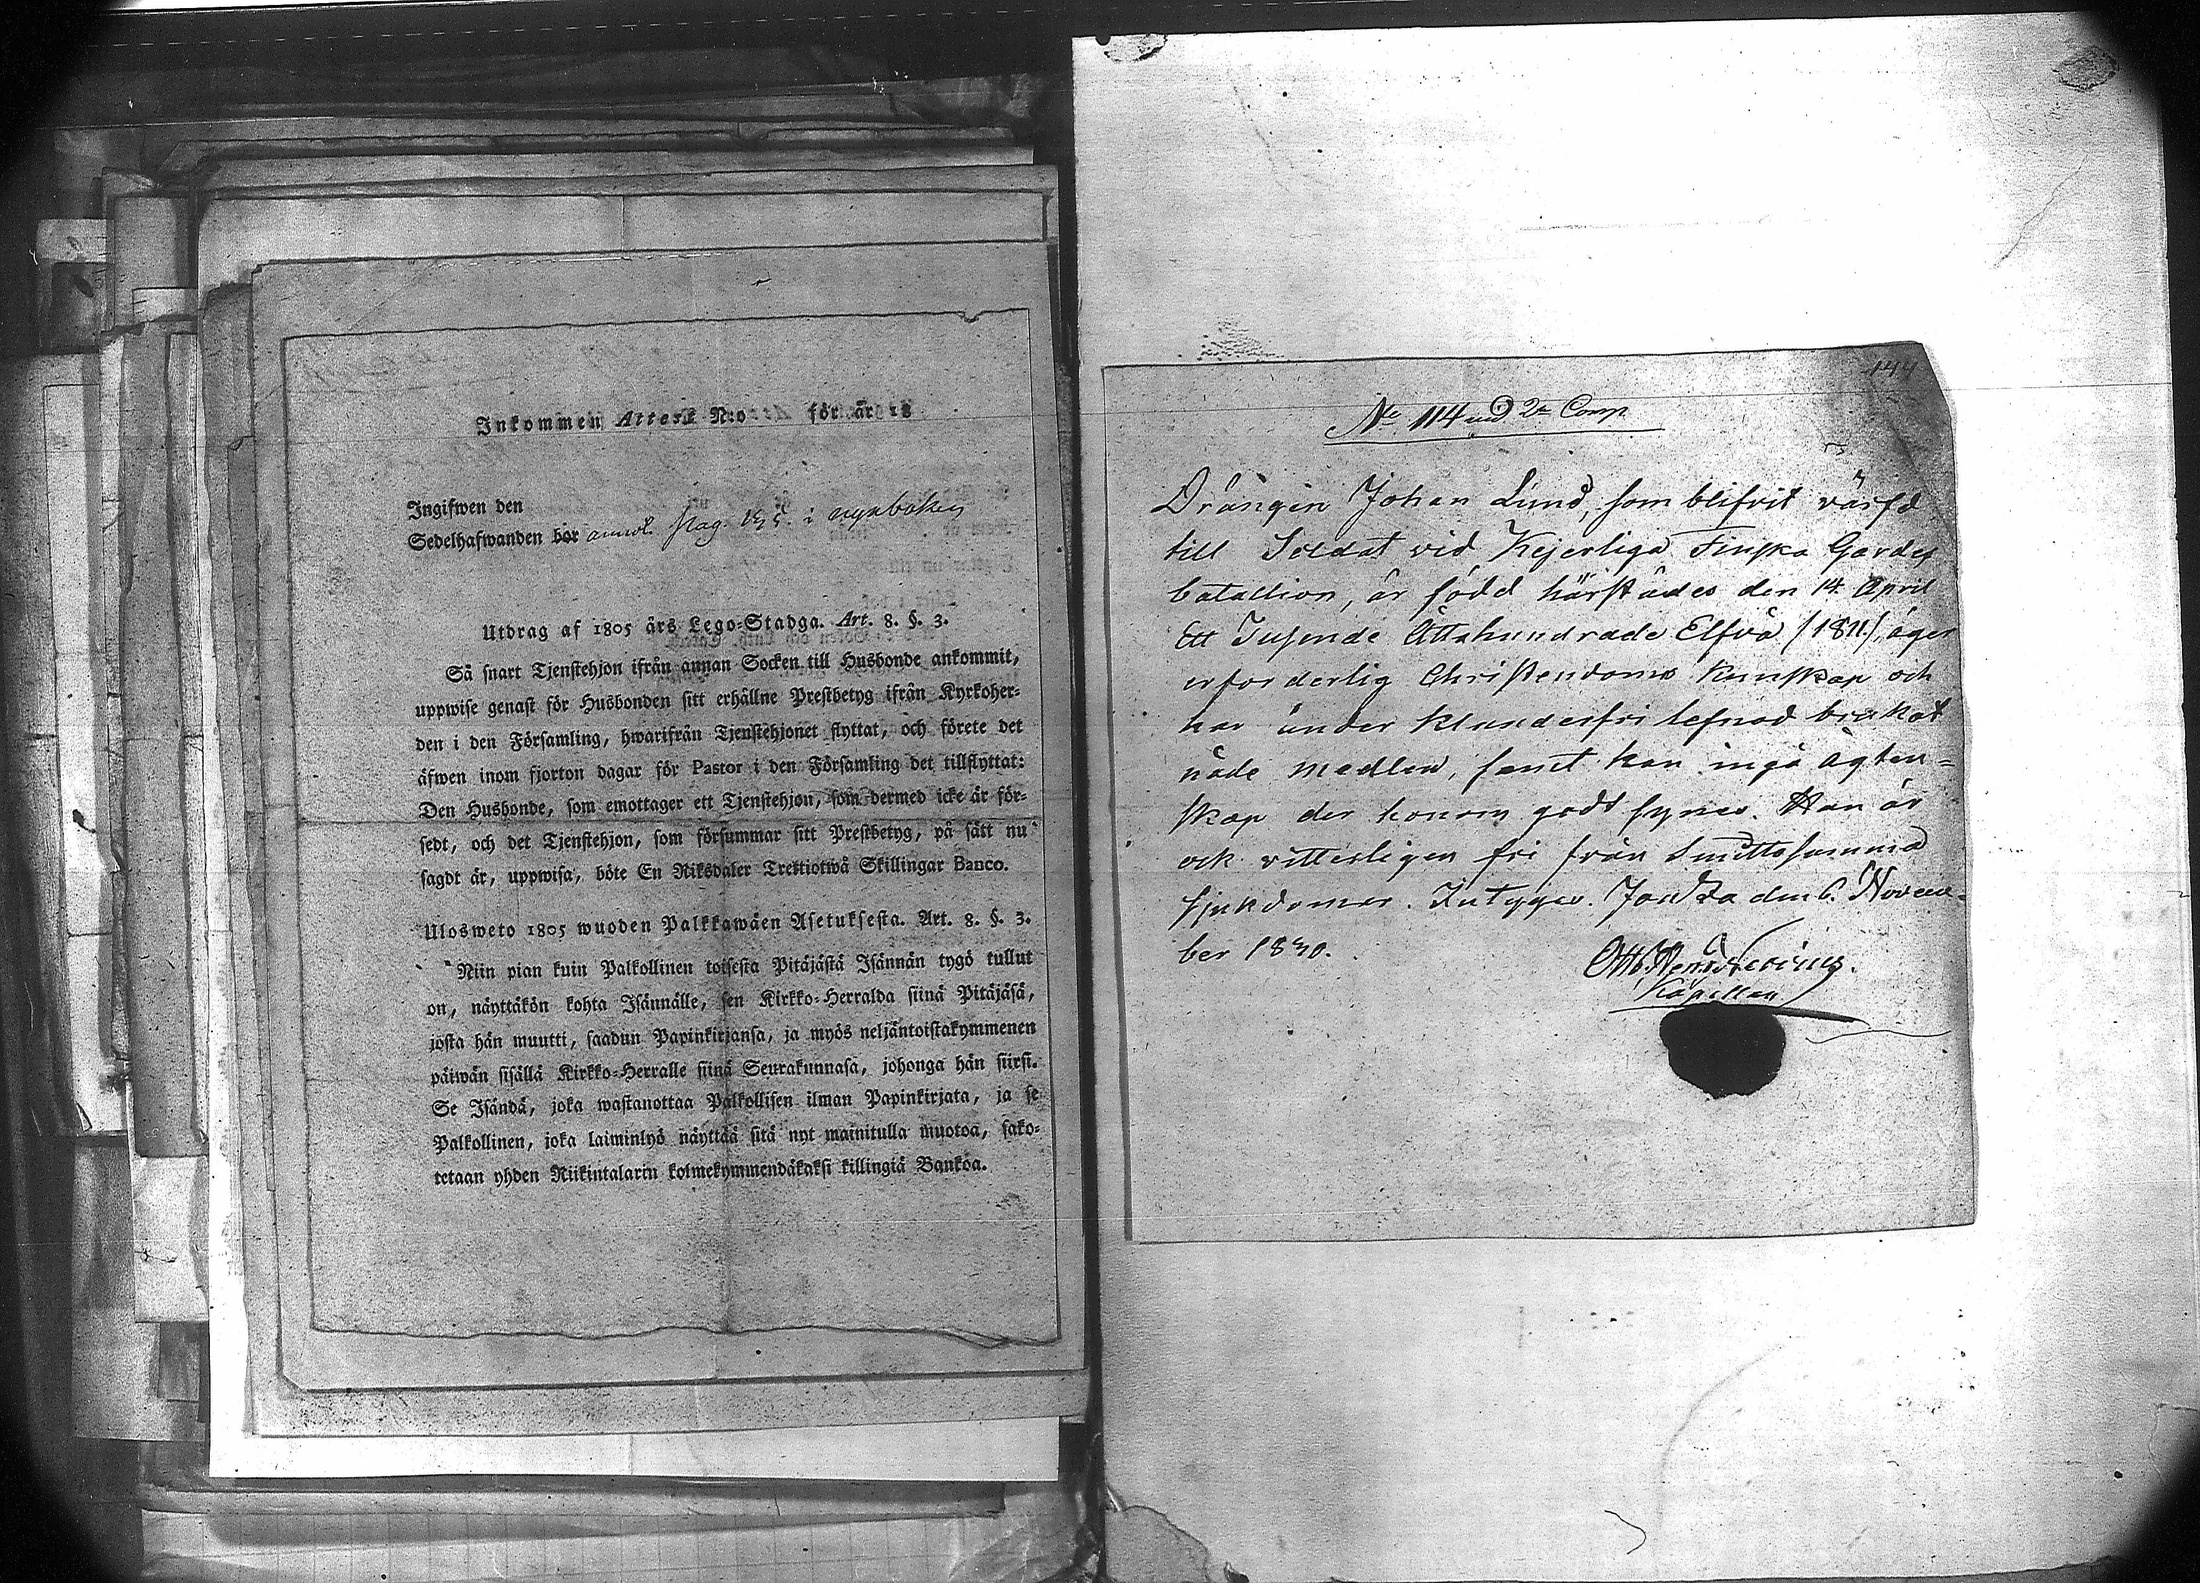 Inkommen Attest N:o för år 18
Ingifwen den
Sedelhafwanden bor annot. pag. i nyaboken
Utdrag af 1805 års Lego-Stadga. Art. 8. §. 3.
Så snart Tjenstehjon ifrån annan Socken till Husbonde ankommit,
uppwise genast för Husbonden sitt erhållne Prestbetyg ifrån Kyrkoher-
den i den Församling, hwarifrån Tjenstehjonet flyttat, och förete det
äfwen inom fjorton dagar för Pastor i den Församling det tillflyttat:
Den Husbonde, som emottager ett Tjenstehjon, som dermed icke är för-
sedt, och det Tjenstehjon, som försummar sitt Prestbetyg, på sätt nu
sagdt är, uppwisa, böte En Riksdaler Trettiotwå Skillingar Banco.
Ulosweto 1805 wuoden Palkkawäen Asetuksesta. Art. 8. §. 3.
Niin pian kuin Palkollinen toisesta Pitäjästä Isännän tygö tullut
on, näyttäkön kohta Isännälle, sen Kirkko-Herralda siinä Pitäjäsä,
josta hän muutti, saadun Papinkirjansa, ja myös neljäntoistakymmenen
päiwän sisällä Kirkko-Herralle siinä Seurakunnasa, johonga hän siirsi.
Se Isändä, joka wastanottaa Palkollisen ilman Papinkirjata, ja se
Palkollinen, joka laiminlyö näyttää sitä nyt mainitulla muotoa, sako-
tetaan yhden Riikintalarin kolmekymmendäkaksi killingiä Bankoa.
144
No 114 vid 2a Comp
Drängen Johan Lund, som blifvit värfd
till Soldat vid Kejserliga Finska Gardes
bataillion, är född härstädes den 14 April
Ett Tusende Åttahundrade Elfva /1811/, äger
erforderlig Christendoms Kunskap och
har under klanderfri lefnad brukat
nåde medlen, samt kan ingå ägten=
skap der honom godt synes. Han är
ock vitterligen fri från Smittosamma
sjukdomar. Intygar. den 6. Novem-
ber 1830.
Otto Henr.
Kapellan